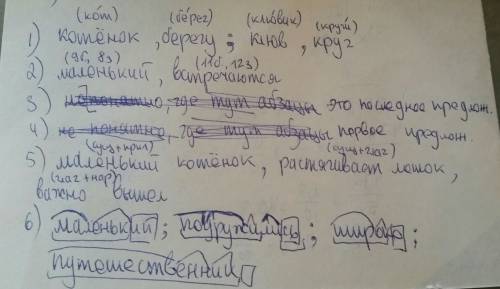 (ко́т) (бе́рег) (клю́вик) (круги́)
1) котёнок, берегу; клюв, круг
(9б, 8з) (11б, 12з)
2) маленький, встречаются
3) не понятно, где тут абзацы это последнее предлож.
4) не понятно, где тут абзацы первое предлож.
(сущ+прил) (сущ+глаг)
5) маленький котёнок, растягивает
(глаг+нар)
важно вышел
6) маленький; подружились;
путешественник